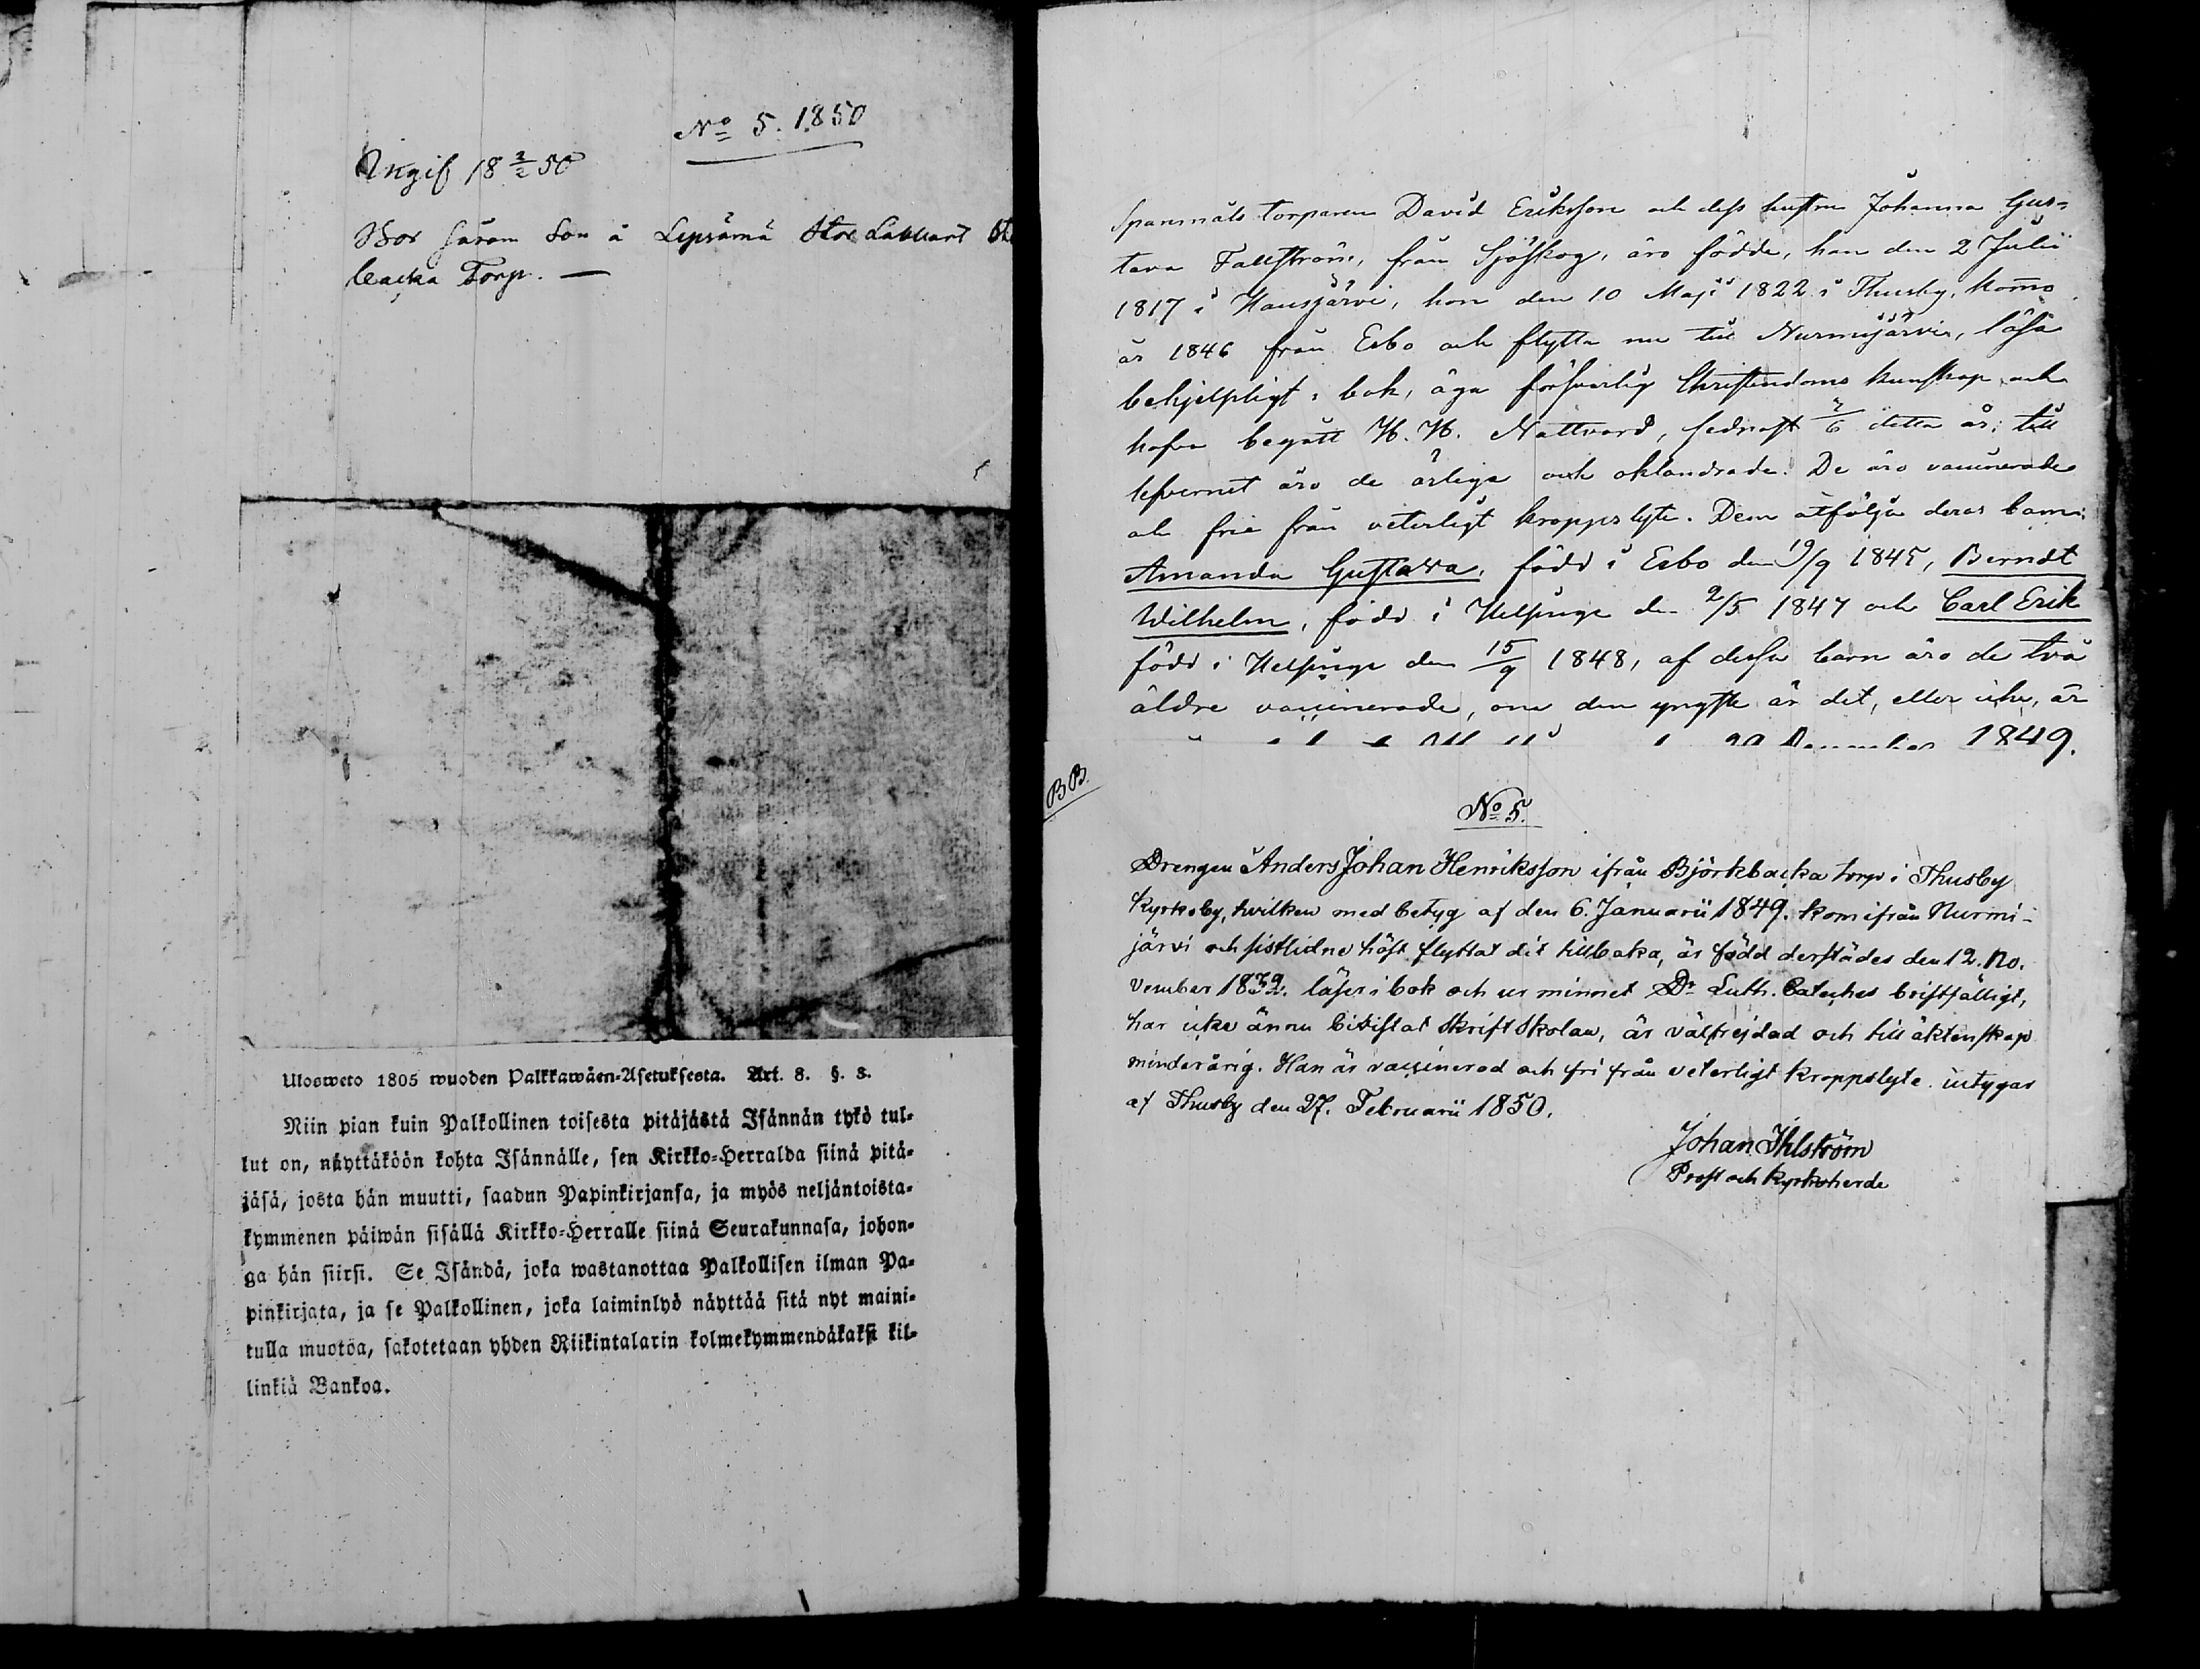 No 5. 1850
Ingif 18 2/2 50
Bor såsom Son å Lepsämä Stor Labbart
backa Torp. —
Ulosweto 1805 wuoden Palkkawäen-Asetuksesta. Art. 8. §. 3.
Niin pian kuin Palkollinen toisesta pitäjästä Isännän tykö tul-
lut on, näyttäköön kohta Isännälle, sen Kirkko-Herralda siinä pitä-
jäsä, josta hän muutti, saadun Papinkirjansa, ja myös neljäntoista-
kymmenen päiwän sisällä Kirkko-Herralle siinä Seurakunnasa, johon-
ga hän siirsi. Se Isändä, joka wastanottaa Palkollisen ilman Pa-
pinkirjata, ja se Palkollinen, joka laiminlyö näyttää sitä nyt maini-
tulla muotoa, sakotetaan yhden Riikintalarin kolmekymmendäkaksi kil-
linkiä Bankoa.
Spanmåls torparen David Eriksson och dess hustru Johanna Gus-
tava Fallström, från Sjöskog, äro födde, han den 2 Julii
1817 i Hausjärvi, hon den 10 Maji 1822 i Thusby, komo
år 1846 från Esbo och flytta nu till Nurmijärvi, läsa
behjelpligt i bok, äga försvarlig Christendoms kunskap och
hafva begått H. H. Nattvard, sednast /6 detta år; till
lefvernet äro de ärliga och oklandrade. De äro vaccinerade
och frie från veterligt kroppslyte. Dem åtfölja deras barn:
Amanda Gustava, född i Esbo den 19/9 1845, Berndt
Wilhelm, född i Helsinge den 2/5 1847 och Carl Erik
född i Helsinge den 15/9 1848, af dessa barn äro de två
äldre vaccinerade, om den yngste är det, eller icke, är
December 1849.
BB.
No 5.
Drengen Anders Johan Henriksson ifrån Björkbacka torp i Thusby
Kyrkoby, hvilken med betyg af den 6. Januarii 1849. kom ifrån Nurmi-
järvi och sistlidne höst flyttat dit tillbaka, är född derstädes den 12. No-
vember 1832. läser i bok och ur minnet Dr Luth. Cateches bristfälligt,
har icke ännu bivistat Skriftskolan, är välfrejdad och till äktenskap
minderårig. Han är vaccinerad och fri från veterligt kroppslyte intygar
af Thusby den 27. Februarii 1850.
Johan Ihlström
Prost och Kyrkoherde